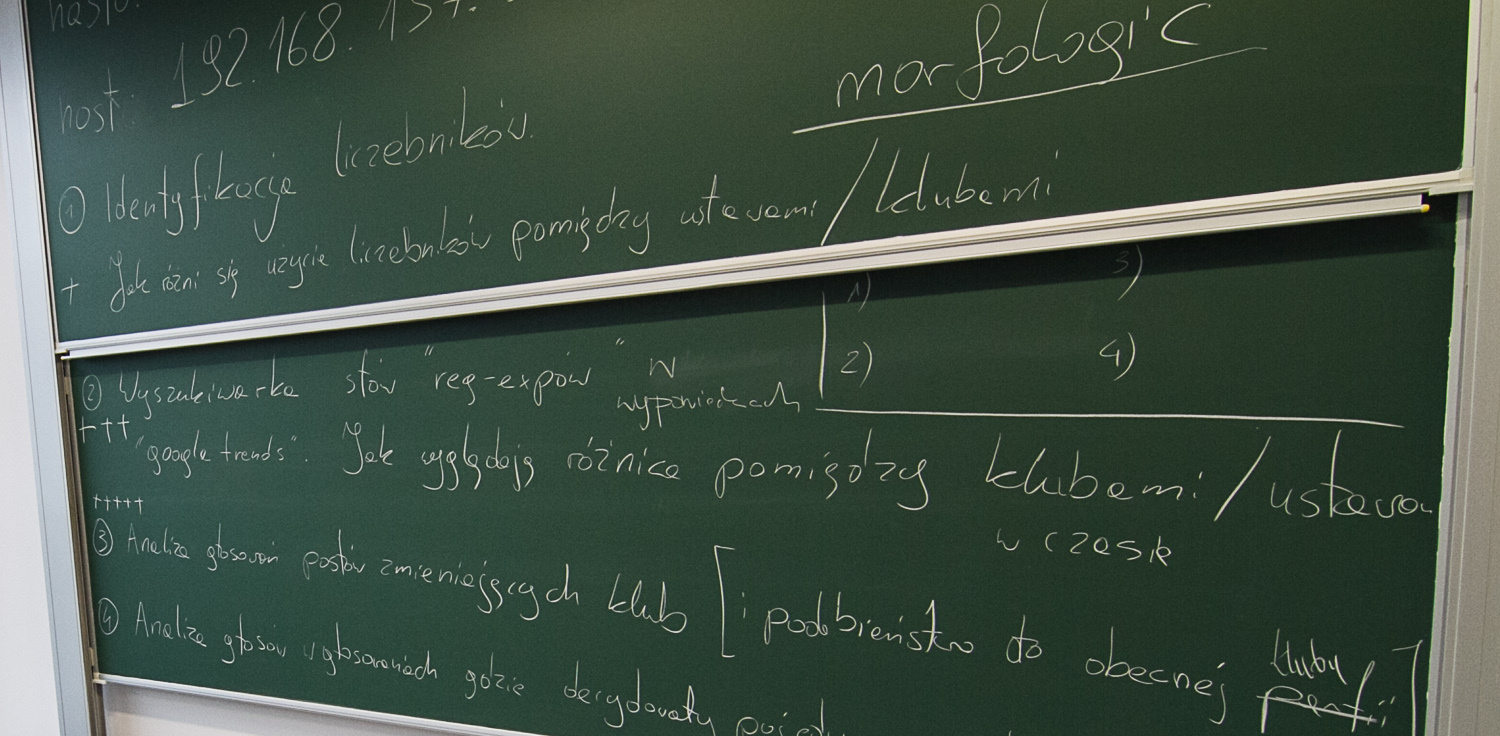 hasło:
host: 192.168.137.
morfologic
① Identyfikacja liczebników.
+ Jak różni się użycie liczebników pomiędzy ustawami / klubami
1) 3)
2) 4)
② Wyszukiwarka słów "reg-expów" w wypowiedziach
+++
"google trends". Jak wyglądają różnice pomiędzy klubami / ustawa
w czasie
+++++
③ Analiza głosowań posłów zmieniających klub [i podobieństwo do obecnej klubu partii]
④ Analiza głosów w głosowaniach gdzie decydowały